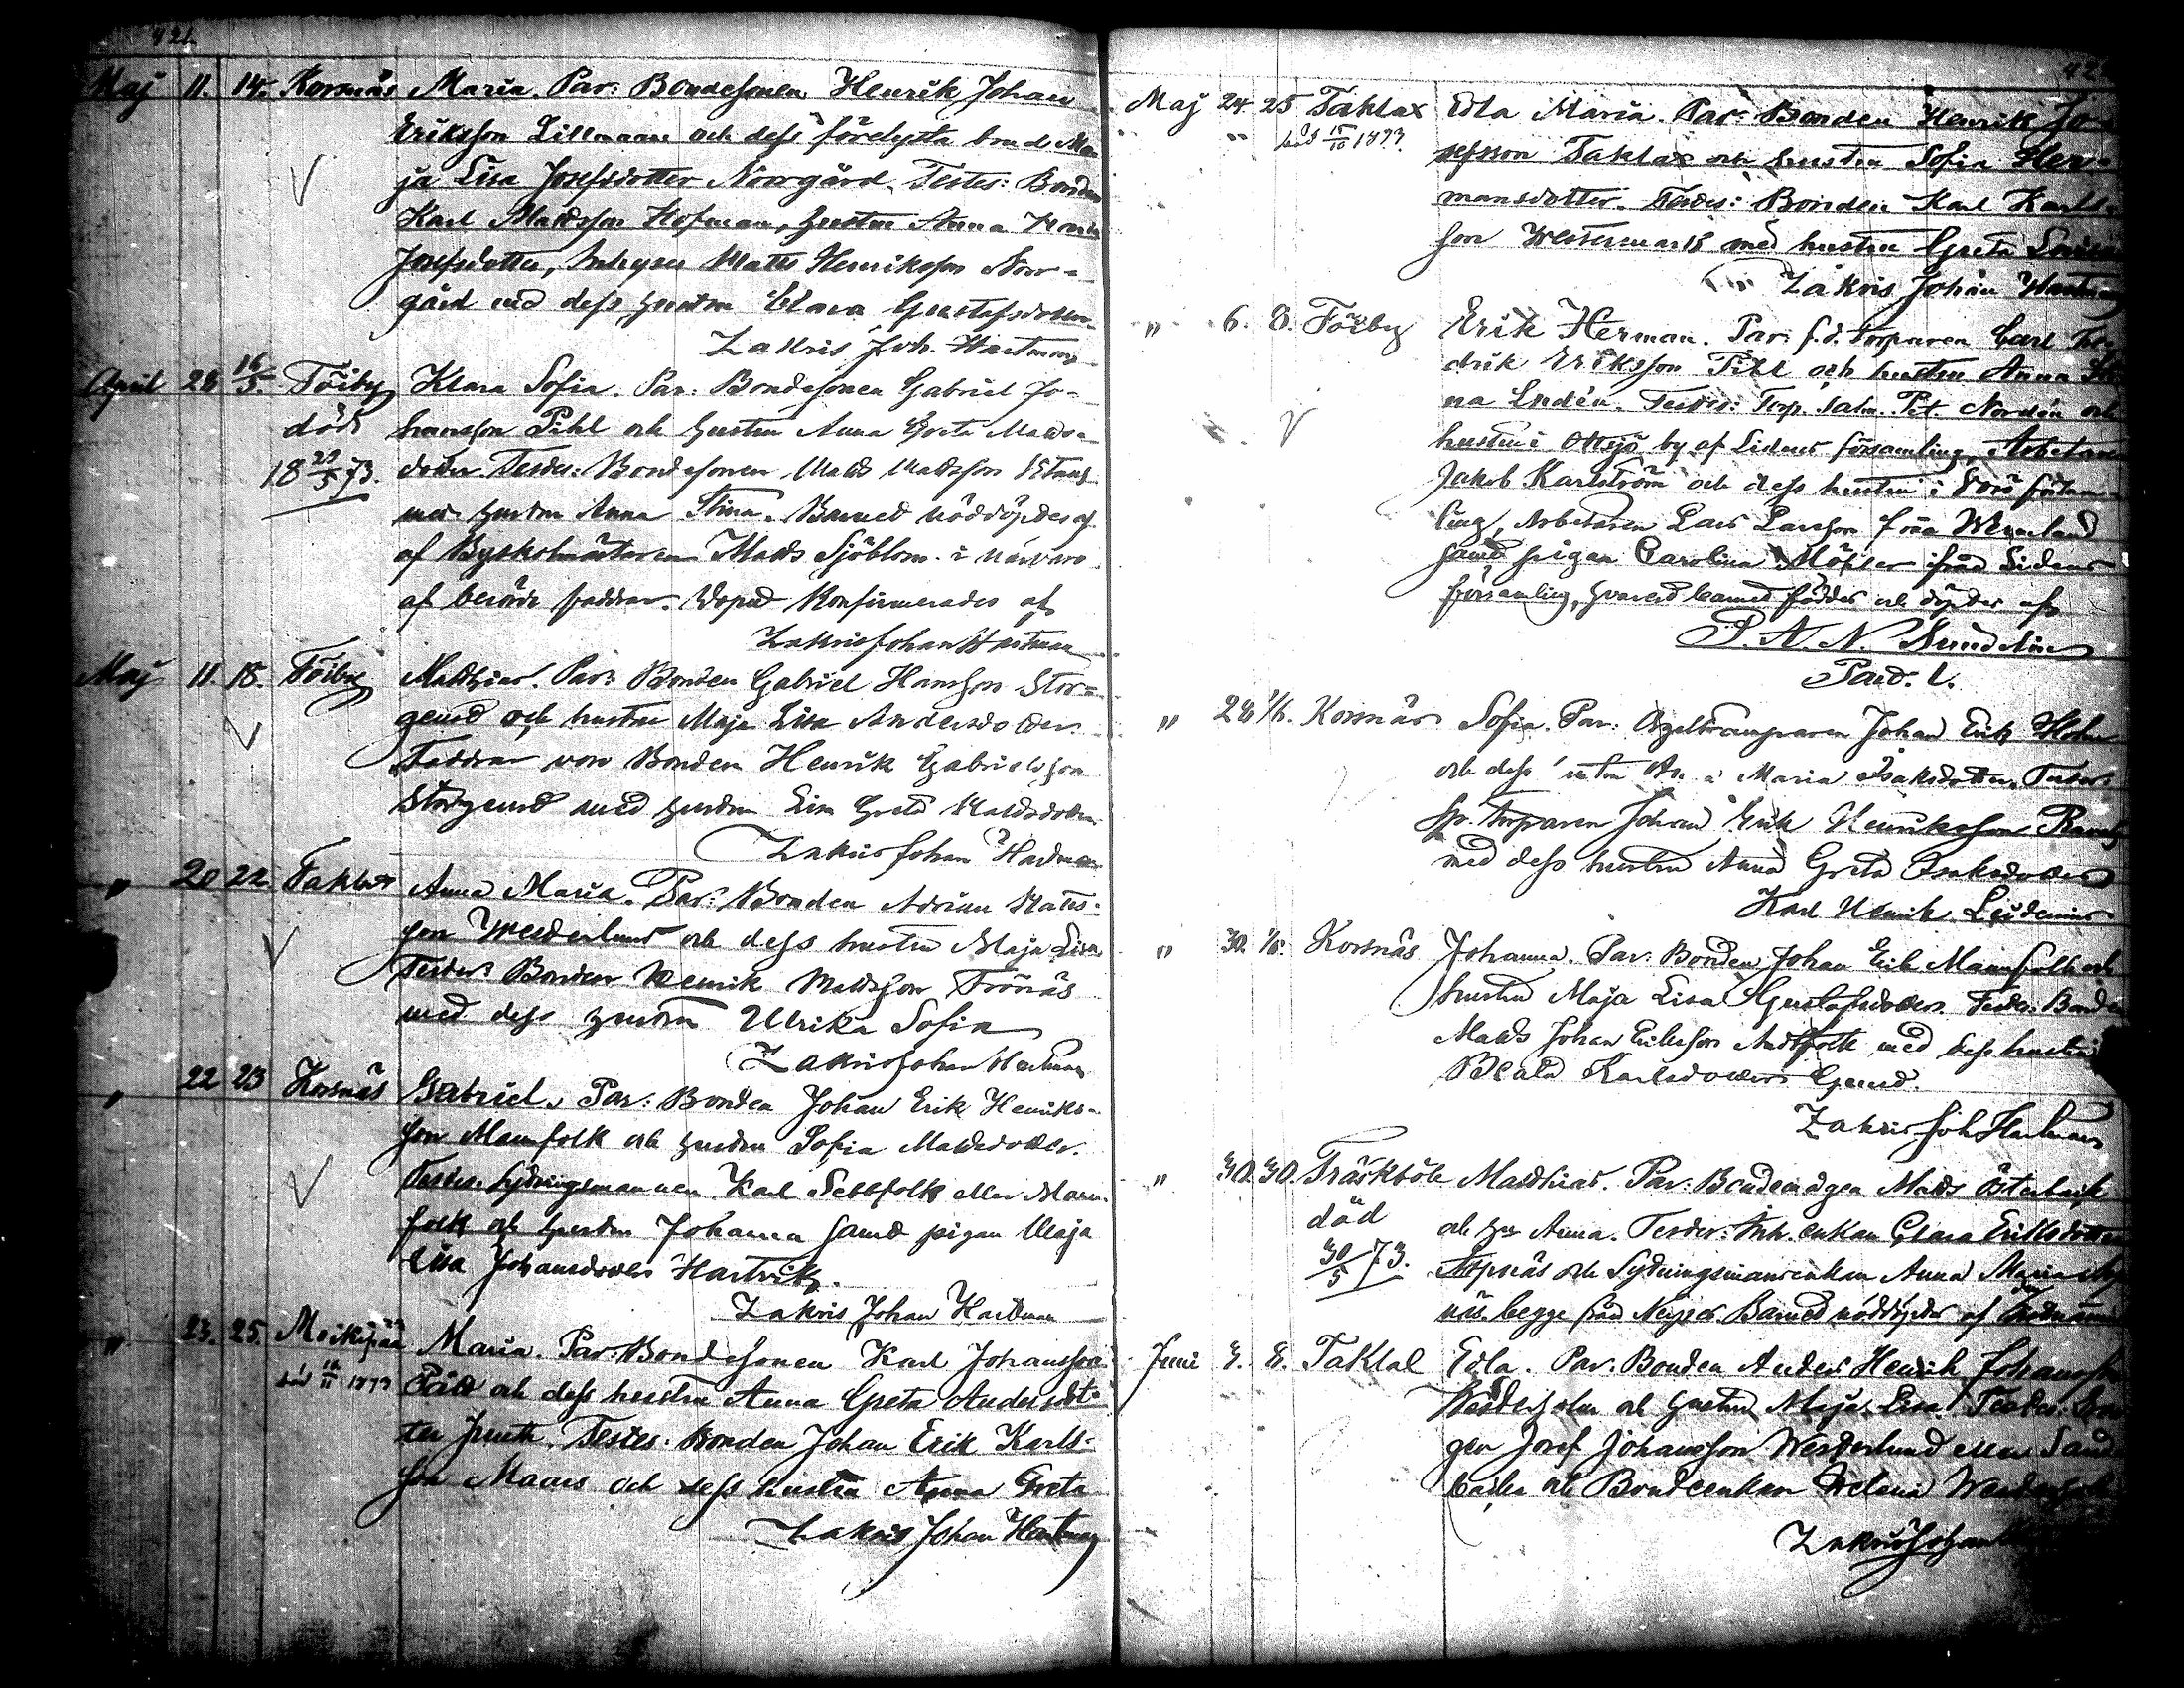 Maj 11. 14. Korsnäs Maria. Par: Bondesonen Henrik Johan
Eriksson Lillmaars och dess förelysta brud Ma
ja Lisa Josefsdotter Norrgård. Testes: Bonden
Karl Mattsson Hofman, hustru Anna Maria
Josefsdotter, Inhyses Matts Henriksson Norr-
gård med dess hustru Clara Gustafsdotter
Zakris Joh. Hartman
April 26 16/5. Töiby Klara Sofia. Par: Bondesonen Gabriel Jo-
död hansson Pihl och hustru Anna Greta Matts-
18 29/5 73. dotter. Testes: Bondesonen Matts Mattsson
med hustru Anna Stina. Barnet nöddöptes af
af Byskolmästaren Matts Sjöblom i närvaro
af berörde faddrar. Dopet Konfirmerades af
Zakris Johan Hartman
Maj 11. 18. Töiby Matthias. Par: Bonden Gabriel Hansson Stor-
gerd och hustru Maja Lisa Andersdotter.
Faddrar voro Bonden Henrik Gabrielsson
Storgerd med hustru Lisa Greta Mattsdotter
Zakris Johan Hartman
" 20 22 Taklax Anna Maria. Par: Bonden Adrian Matts-
son Westerlund och dess hustru Maja Lisa
Testes: Bonden Henrik Mattsson Frönäs
med dess hustru Ulrika Sofia
Zakris Johan Hartman
" 22 23 Korsnäs Gabriel. Par: Bonden Johan Erik Henriks-
son Mannfolk och hustru Sofia Mattsdotter.
Testes: Sytningsmannen Karl Sebbfolk eller Mann-
folk och hustru Johanna samt pigan Maja
Lisa Johansdotter Hartvik.
Zakris Johan Hartman
" 23. 25. Moikipää Maria. Par: Bondesonen Karl Johansson
död 1873 och dess hustru Anna Greta Andersdot-
ter Testes: Bonden Johan Erik Karls-
son Maars och dess hustru Anna Greta
Zakris Johan Hartman
Maj 24 25 Taklax Edla Maria. Par: Bonden Henrik Jo-
död 15/10 1873. sefsson Taklax och hustru Sofia Her-
mansdotter. Testes: Bonden Karl Karls-
son Westermark med hustru Greta Lovisa
Zakris Johan Hartman
" 6. 8. Töiby Erik Herman. Par: f.d. Torparen Carl Fre-
drik Eriksson Pihl och hustru Anna
na Lindén. Testes: Torp. Salm. Pet. Nordin och
hustru i Ottsjö by af Lidens församling, Arbetaren
Jakob Karlström och dess hustru i Fors försam-
ling, Arbetaren Lars Larsson från Wermland
samt pigan Carolina Möhler ifrån Lidens
församling, hvarest barnet föddes och döptes af
P. A. N. Sundelin
Past. l.
" 28 1/6. Korsnäs Sofia. Par: Orgeltramparen Johan Erik Holm
och dess Maria Isaksdotter. Testes
Sp. torparen Johan Erik Henriksson
med dess hustru Anna Greta Isaksdotter
Karl Henrik Lidenius
" 30. 1/6. Korsnäs Johanna. Par: Bonden Johan Erik Mannfolk och
hustru Maja Lisa Gustafsdotter. Testes: Bonden
Matts Johan Eriksson Nordfolk med dess hustru
Beata Karlsdotter Gerd.
Zakris Joh Hartman
" 30. 30. Träskböle Matthias. Par: Bondemågen Matts Österback
död och hu Anna. Testes: Inh. enkan Clara Eriksdotter
30/5 73. Aspnäs och Sytningsmansenkan Anna Maria Asp
näs begge från Nerpes. Barnet nöddöptes af
Juni 3. 8. Taklal Edla. Par: Bonden Anders Henrik Johansson
Westerholm och hustru Maja Lisa. Testes:
gen Josef Johansson Westerlund eller Sand
backa och Bondeenkan Helena Westerholm
Zakris Johan